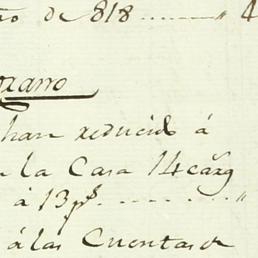 ño de 818 ........ " 4
zarro
han reducido á
la Casa 14 carg
á 13 ps. ........ "
á las Cuentas de